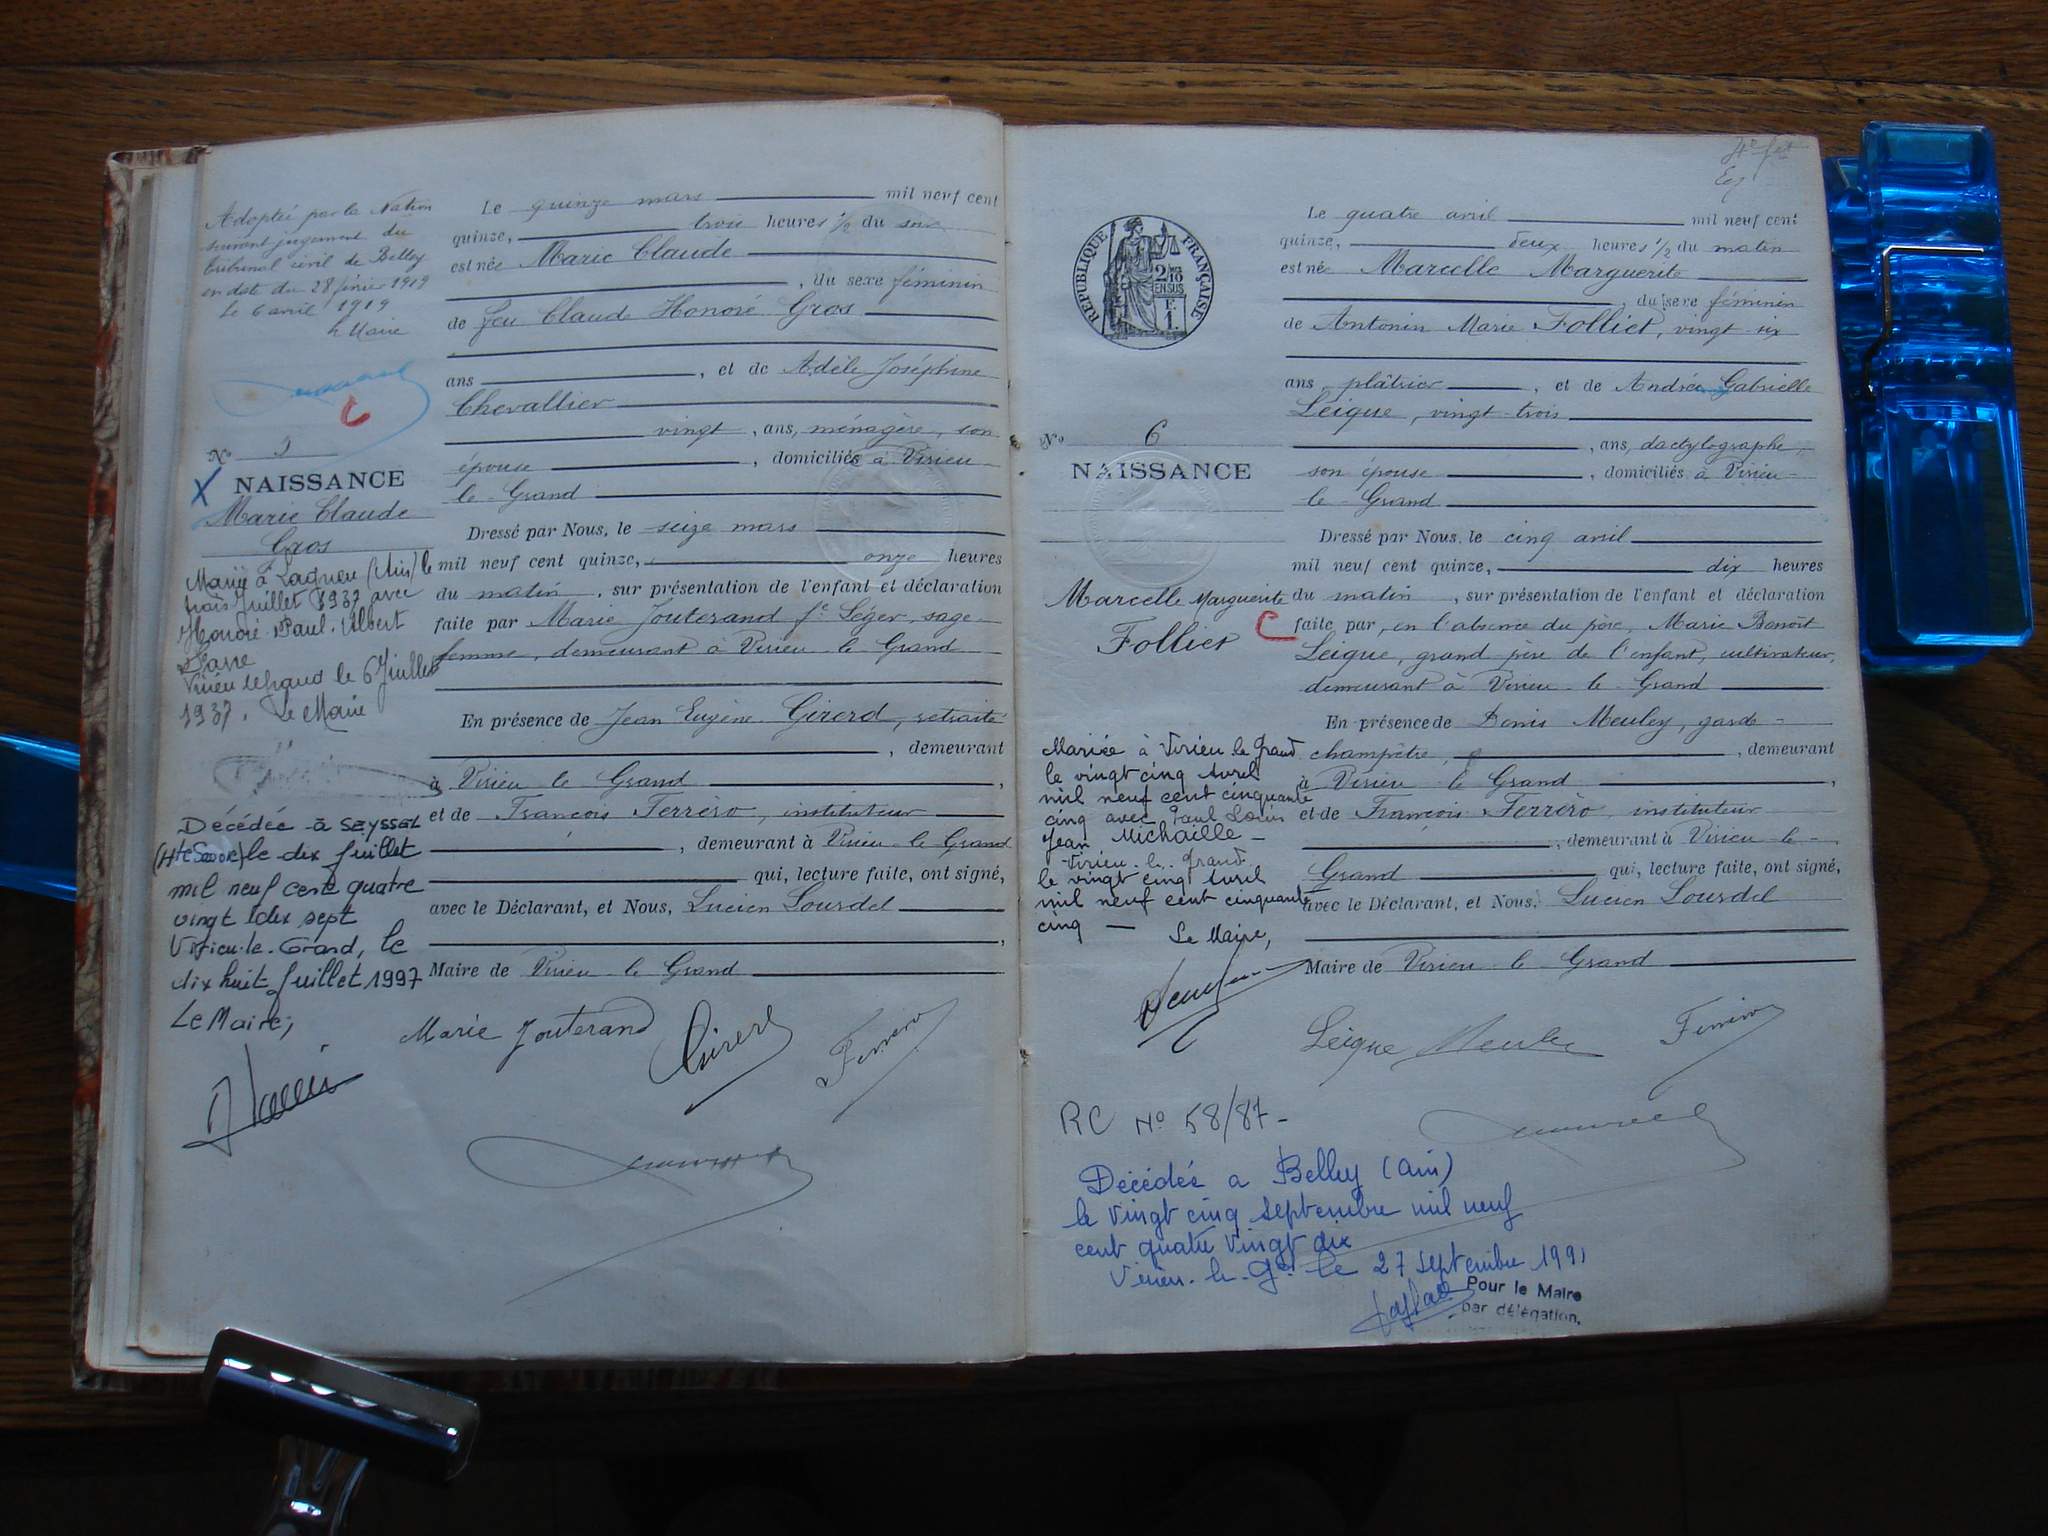 Adoptée par la Nation
suivant jugement du
tribunal civil de Belley
en date du 28 février 1919
Le 6 avril 1919
Le Maire
C
N°
NAISSANCE
X
Marie Claude
Gros
Mariée à Lagnieu (Ain) le
trois Juillet 1937 avec
Honoré Paul Albert
Virieu le grand le 6 Juillet
1937. Le Maire
Décédée à SEYSSEL
(Hte Savoie) le dix juillet
mil neuf cent quatre
vingt dix sept
Virieu-le-Grand, le
dix huit juillet 1997
Le Maire,
Le quinze mars mil neuf cent
quinze, trois heures 1/2 du soir
est née Marie Claude
, du sexe féminin
de feu Claude Honoré Gros
ans , et de Adèle Joséphine
Chevallier
vingt , ans, ménagère, son
épouse , domiciliés à Virieu
le-Grand
Dressé par Nous, le seize mars
mil neuf cent quinze, onze heures
du matin , sur présentation de l'enfant et déclaration
faite par Marie Jouterand fe Léger, sage-
femme, demeurant à Virieu-le-Grand
En présence de Jean Eugène Girerd, retraité
, demeurant
à Virieu-le-Grand ,
et de François Ferrèro, instituteur
, demeurant à Virieu-le-Grand
qui, lecture faite, ont signé,
avec le Déclarant, et Nous, Lucien Lourdel
,
Maire de Virieu-le-Grand
Marie Jouterand Girerd Ferrero
4e fet
RÉPUBLIQUE FRANÇAISE
2/10
EN SUS
F.
1.
N° 6
NAISSANCE
Marcelle Marguerite
Folliet
C
Mariée à Virieu le Grand
le vingt cinq Avril
mil neuf cent cinquante
cinq avec Paul Louis
Jean Michaille
Virieu-le-Grand
le vingt cinq Avril
mil neuf cent cinquante
cinq
Le Maire,
Le quatre avril mil neuf cent
quinze, deux heures 1/2 du matin
est née Marcelle Marguerite
, du sexe féminin
de Antonin Marie Folliet, vingt-six
ans, plâtrier , et de Andrée Gabrielle
Leigue, vingt-trois
, ans, dactylographe,
son épouse , domiciliés à Virieu-
le-Grand
Dressé par Nous, le cinq avril
mil neuf cent quinze, dix heures
du matin , sur présentation de l'enfant et déclaration
faite par, en l'absence du père, Marie Benoît
Leigue, grand père de l'enfant, cultivateur,
demeurant à Virieu-le-Grand
En présence de Denis Meuley, garde-
champêtre, , demeurant
à Virieu-le-Grand ,
et de François Ferrèro, instituteur
, demeurant à Virieu-le-
Grand qui, lecture faite, ont signé,
avec le Déclarant, et Nous, Lucien Lourdel
Maire de Virieu-le-Grand
Leigue Meuley Ferrero
RC N° 58/87-
Décédée a Belley (ain)
le vingt cinq septembre mil neuf
cent quatre vingt dix
Virieu-le-Gd le 27 septembre 1991
Pour le Maire
par délégation.